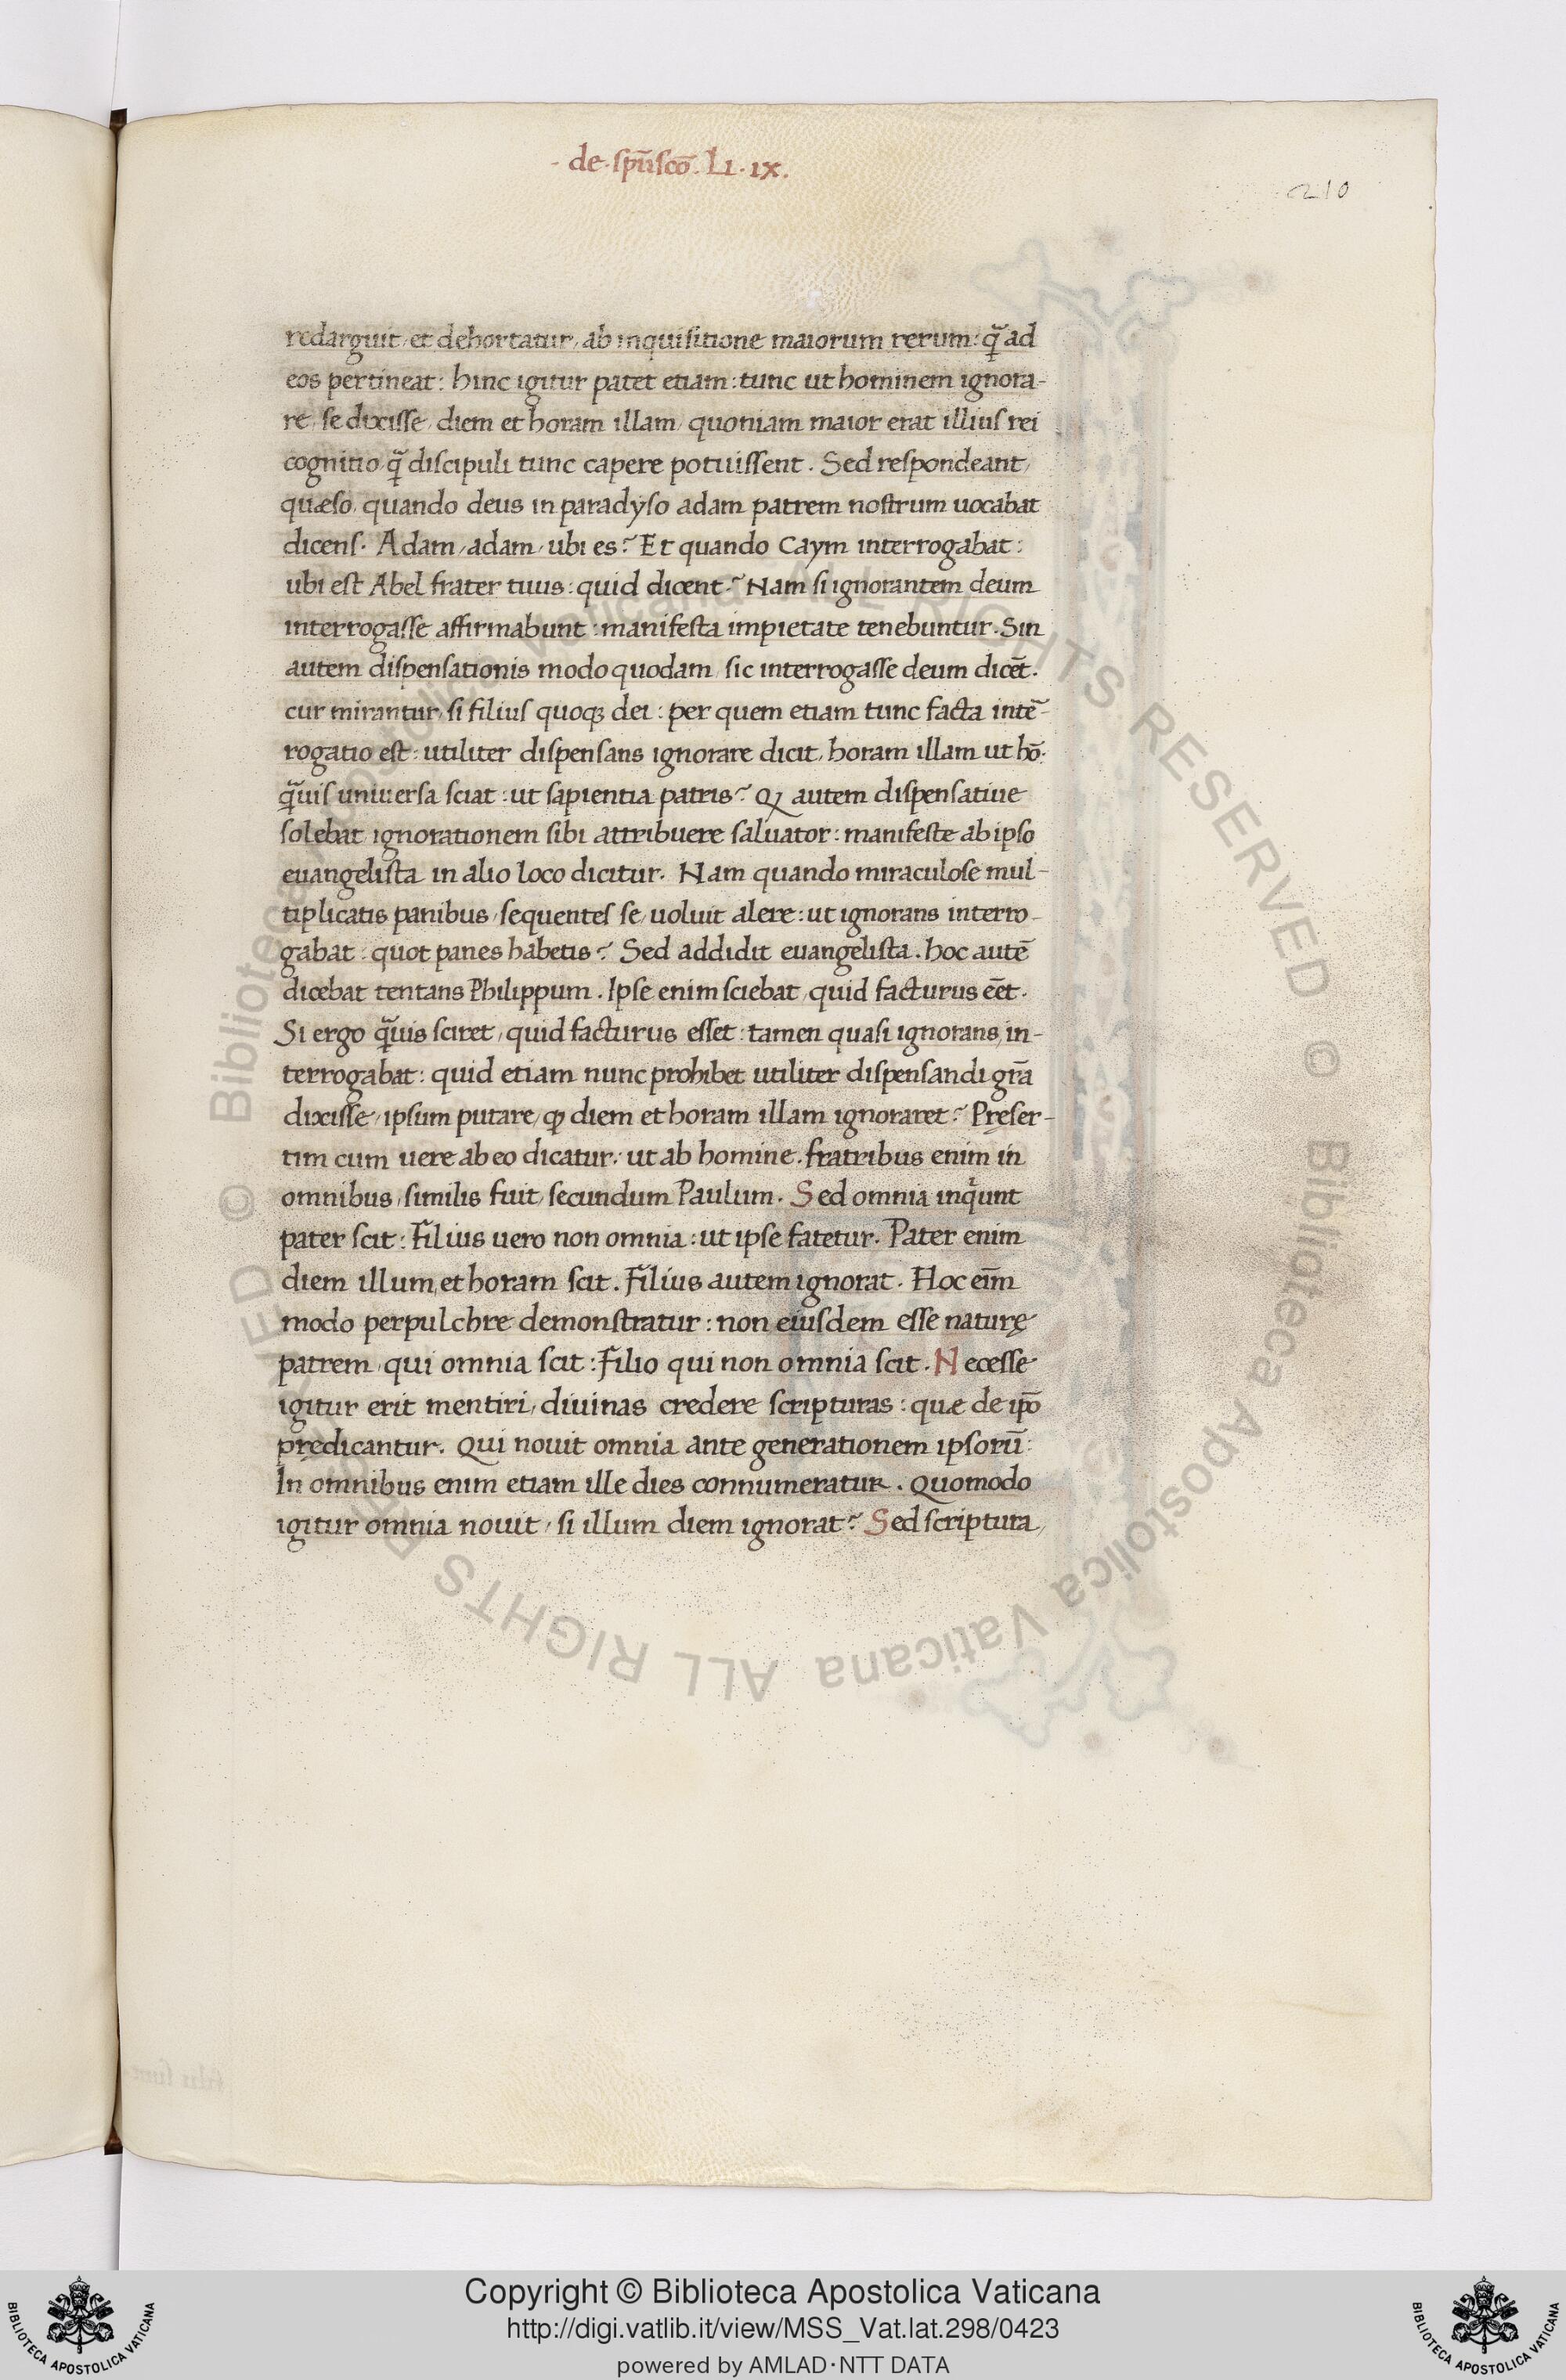 de spũscõ. LI. IX.
210
redarguit, et dehortatur, ab inquisitione maiorum rerum: q̃ ad
eos pertineat: hinc igitur patet etiam: tunc ut hominem ignora-
re, se dixisse, diem et horam illam, quoniam maior erat illius rei
cognitio, q̃ discipuli tunc capere potuissent. Sed respondeant,
quæso, quando deus in paradyso adam patrem nostrum uocabat
dicens. Adam, adam, ubi es? Et quando Caym interrogabat:
ubi est Abel frater tuus: quid dicent? Nam si ignorantem deum
interrogasse affirmabunt: manifesta impietate tenebuntur. Sin
autem dispensationis modo quodam, sic interrogasse deum dicẽt.
cur mirantur, si filius quoqꝫ dei: per quem etiam tunc facta intẽ-
rogatio est: utiliter dispensans ignorare dicit, horam illam ut hõ:
q̃uis uniuersa sciat: ut sapientia patris? Qꝫ autem dispensatiue
solebat ignorationem sibi attribuere saluator: manifeste ab ipso
euangelista in alio loco dicitur. Nam quando miraculose mul-
tiplicatis panibus, sequentes se, uoluit alere: ut ignorans interro-
gabat: quot panes habetis? Sed addidit euangelista. hoc autẽ
dicebat tentans Philippum. Ipse enim sciebat, quid facturus eẽt.
Si ergo q̃uis sciret, quid facturus esset: tamen quasi ignorans, in-
terrogabat: quid etiam nunc prohibet utiliter dispensandi grã
dixisse, ipsum putare, ꝙ diem et horam illam ignoraret? Pręser-
tim cum uere ab eo dicatur: ut ab homine. fratribus enim in
omnibus, similis fuit, secundum Paulum. Sed omnia inq̇unt
pater scit: Filius uero non omnia: ut ipse fatetur. Pater enim
diem illum, et horam scit. Filius autem ignorat. Hoc eim̃
modo perpulchre demonstratur: non eiusdem esse naturę
patrem, qui omnia scit: Filio qui non omnia scit. Necesse
igitur erit mentiri, diuinas credere scripturas: quæ de ip̃o
prędicantur. Qui nouit omnia ante generationem ipsorũ:
In omnibus enim etiam ille dies connumeratur. Quomodo
igitur omnia nouit, si illum diem ignorat? Sed scriptura,
© Biblioteca Apostolica Vaticana ALL RIGHTS RESERVED
© Biblioteca Apostolica Vaticana ALL RIGHTS RESERVED
Copyright © Biblioteca Apostolica Vaticana
http://digi.vatlib.it/view/MSS_Vat.lat.298/0423
powered by AMLAD·NTT DATA
BIBLIOTECA APOSTOLICA VATICANA
BIBLIOTECA APOSTOLICA VATICANA